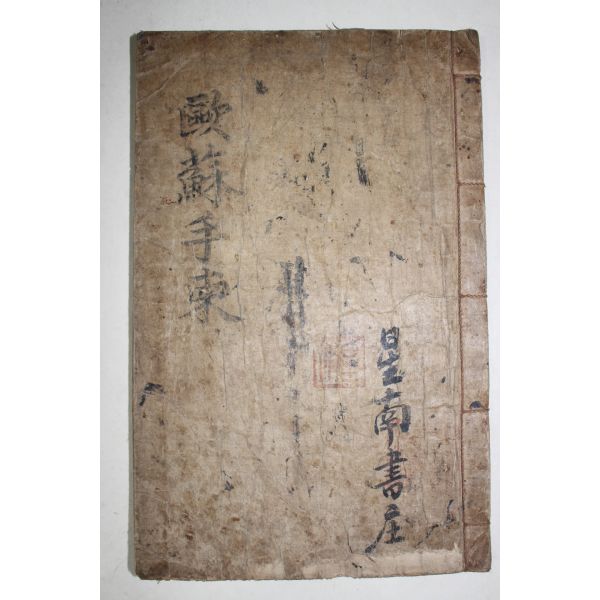 歐蘇手柬
星南書庄